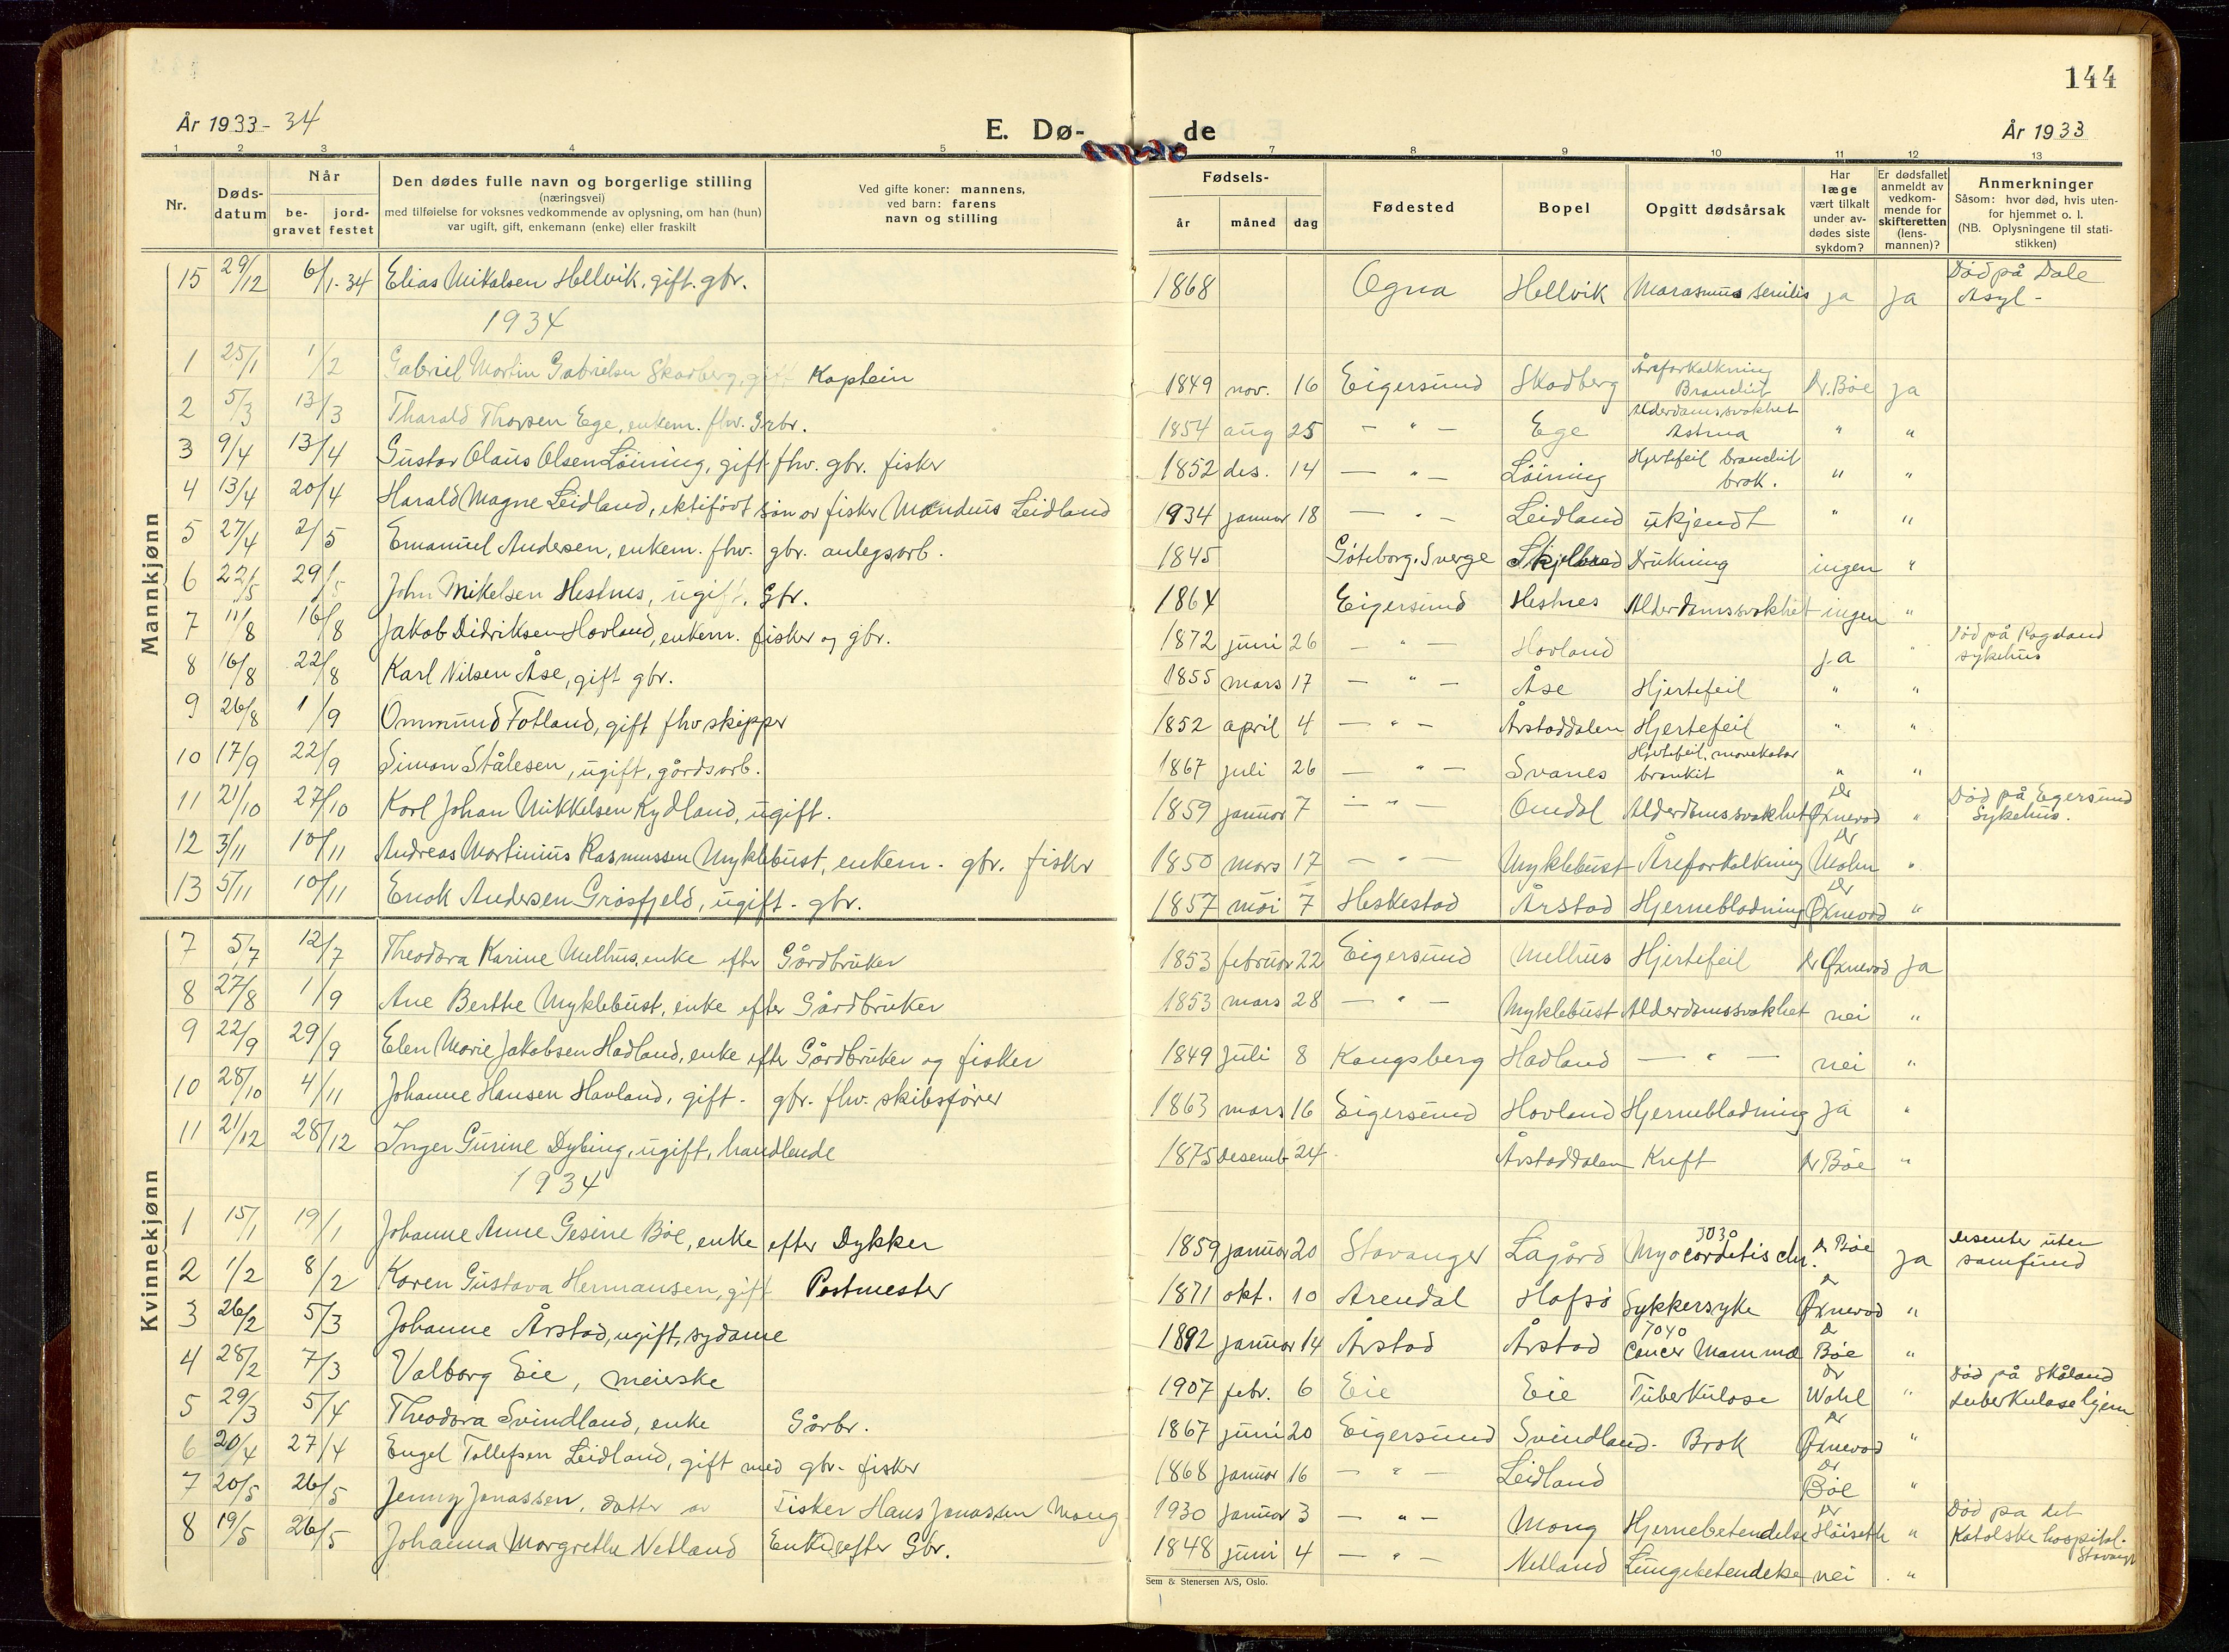 144
År 1933-34
E. Dø-de
År 1933
1 2 3 4 5 7 8 9 10 11 12 13
Nr.
Døds-datum
Når
be-gravet
jord-festet
Den dødes fulle navn og borgerlige stilling
(næringsvei)
med tilføielse for voksnes vedkommende av oplysning, om han (hun)
var ugift, gift, enkemann (enke) eller fraskilt
Ved gifte koner: mannens,
ved barn: farens
navn og stilling
Fødsels-
år måned dag
Fødested
Bopel
Opgitt dødsårsak
Har læge vært tilkalt under av-dødes siste sykdom?
Er dødsfallet anmeldt av vedkom-mende for skifteretten (lens-mannen)?
Anmerkninger
Såsom: hvor død, hvis uten-for hjemmet o. l.
(NB. Oplysningene til stati-stikken)
Mannkjønn
15 29/12 6/1-34 Elias Mikalsen Hellvik, gift. gbr. 1868 Ogna Hellvik Marasmus senilis ja ja Død på Dale Asyl-
1934
1 25/1 1/2 Gabriel Martin Gabrielsen Skadberg, gift Kaptein 1849 nov. 16 Eigersund Skadberg Åreforkalkning Bronchit Dr. Bøe ja
2 5/3 13/3 Tharald Thorsen Ege, enkem. fhv. Grbr. 1854 aug 25 — " — Ege Alderdamssvakhet Astma " "
3 9/4 13/4 Gustav Olaus Olsen Løining, gift fhv. gbr. fisker 1852 des. 14 — " — Løining Hjertefeil bronchit brok. " "
4 13/4 20/4 Harald Magne Leidland, ektefødt søn av fisker Mandius Leidland 1934 januar 18 — " — Leidland ukjendt " "
5 27/4 2/5 Emanuel Andersen, enkem. fhv. gbr. anlegsarb. 1845 Göteborg. Sverge Skjelbred Drukning ingen "
6 22/5 29/5 John Mikelsen Hestnes, ugift, Gbr. 1864 Eigersund Hestnes Alderdamssvakhet ingen "
7 11/8 16/8 Jakob Didriksen Hovland, enkem. fisker og gbr. 1872 juni 26 — " — Hovland ja " Død på Rogaland sykehus
8 16/8 22/8 Karl Nilsen Åse, gift gbr. 1855 mars 17 — " — Åse Hjertefeil " "
9 26/8 1/9 Ommund Fotland, gift fhv skipper 1852 april 4 — " — Årstaddalen Hjertefeil " "
10 17/9 22/9 Simon Stålesen, ugift, gårdsarb. 1867 juli 26 — " — Svanes Hjertefeil, bronkit " "
11 21/10 27/10 Karl Johan Mikkelsen Kydland, ugift. 1859 januar 7 — " — Omdal Alderdomssvakhet Dr Øxnevad " Død på Egersund Sykehus.
12 3/11 10/11 Andreas Martinius Rasmussen Myklebust, enkem. gbr. fisker 1850 mars 17 — " — Myklebust Åreforkalkning Dr Molm "
13 5/11 10/11 Enok Andersen Grøsfjeld, ugift - gbr. 1857 mai 7 Heskestad Årstad Hjerneblødning Dr Øxnevad "
Kvinnekjønn
7 5/7 12/7 Theodora Karine Melhus, enke efter Gårdbruker 1853 februar 22 Eigersund Melhus Hjertefeil Dr Øxnevad Ja
8 27/8 1/9 Ane Berthe Myklebust, enke efter Gårdbruker 1853 mars 28 — " — Myklebust Alderdomssvakhet nei "
9 22/9 29/9 Elen Marie Jakobsen Hadland, enke efter Gårdbruker og fisker 1849 juli 8 Kongsberg Hadland — " — nei "
10 28/10 4/11 Johanne Hansen Havland, gift - gbr. fhv. skibsfører 1863 mars 16 Eigersund Hovland Hjerneblødning ja "
11 21/12 28/12 Inger Gurine Dybing, ugift, handlende 1875 desemb 24 Årstaddalen Kreft Dr Bøe "
1934
1 15/1 19/1 Johanne Anne Gesine Bøe, enke efter Dykker 1859 januar 20 Stavanger Lagård 3030 Myocorditis chr. Dr Bøe ja disenter uten samfund
2 1/2 8/2 Karen Gustava Hermansen, gift Postmester 1871 okt. 10 Arendal Hafsø Sykkersyke Dr Øxnevad "
3 26/2 5/3 Johanne Årstad, ugift, sydame 1892 januar 14 Årstad Årstad 7040 Cancer Mamma Dr Bøe "
4 28/2 7/3 Valborg Eie, meierske 1907 febr. 6 Eie Eie Tuberkulose Dr Wahl " Død på Skåland tuberkulosehjem
5 29/3 5/4 Theodora Svindland, enke Gårbr. 1867 juni 20 Eigersund Svindland. Brok Dr Øxnevad "
6 20/4 27/4 Engel Tollefsen Leidland, gift med gbr. fisker 1868 januar 16 — " — Leidland Dr Bøe "
7 20/5 26/5 Jenny Jonassen, datter av Fisker Hans Jonassen Mong 1930 januar 3 — " — Mong Hjernebetendelse Dr Høiseth " Død pa det Katolske hospital. Stavanger
8 19/5 26/5 Johanna Margrethe Netland Enke efter Gbr. 1848 juni 4 — " — Netland Lungebetendelse nei "
Sem & Stenersen A/S, Oslo.